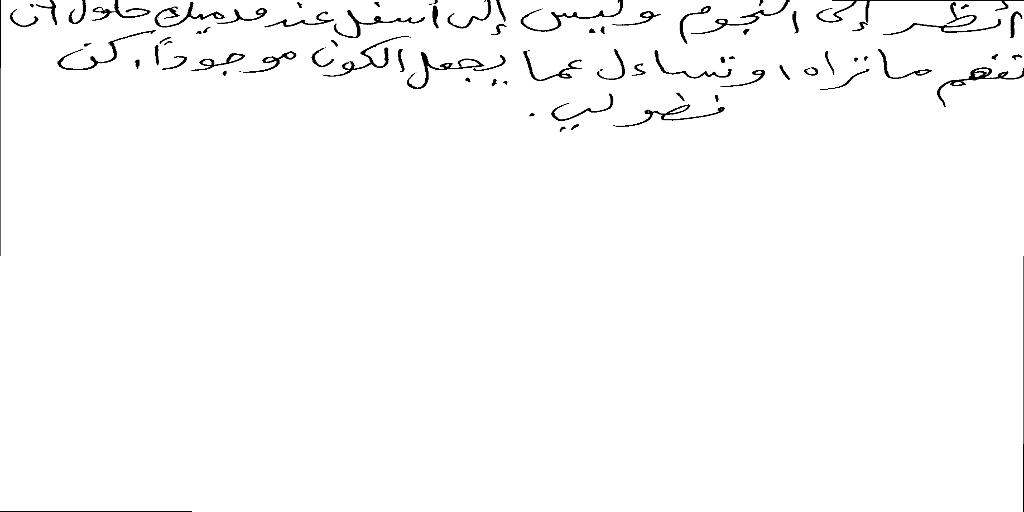 أنظر إلى النجوم وليس إلى أسفل عند قدميك حاول أن
تفهم ما تراه، وتساءل عما يجعل الكون موجوداً. كن
فضولي.